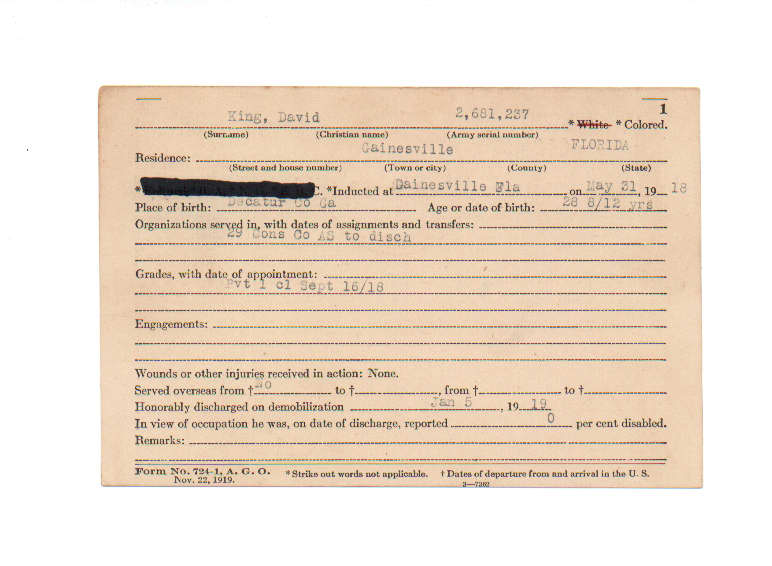 1
King, David 2,681,237 * White * Colored.
(Surname) (Christian name) (Army serial number)
Residence: Gainesville FLORIDA
(Street and house number) (Town or city) (County) (State)
* C. *Inducted at Gainesville Fla on May 31, 1918
Place of birth: Decatur Co Ga Age or date of birth: 28 8/12 yrs
Organizations served in, with dates of assignments and transfers:
29 Cons Co AS to disch
Grades, with date of appointment:
Pvt 1 cl Sept 16/18
Engagements:
Wounds or other injuries received in action: None.
Served overseas from † No to †, from † to †
Honorably discharged on demobilization Jan 5, 1919
In view of occupation he was, on date of discharge, reported 0 per cent disabled.
Remarks:
Form No. 724-1, A. G. O. *Strike out words not applicable. †Dates of departure from and arrival in the U. S.
Nov. 22, 1919. 3—7362